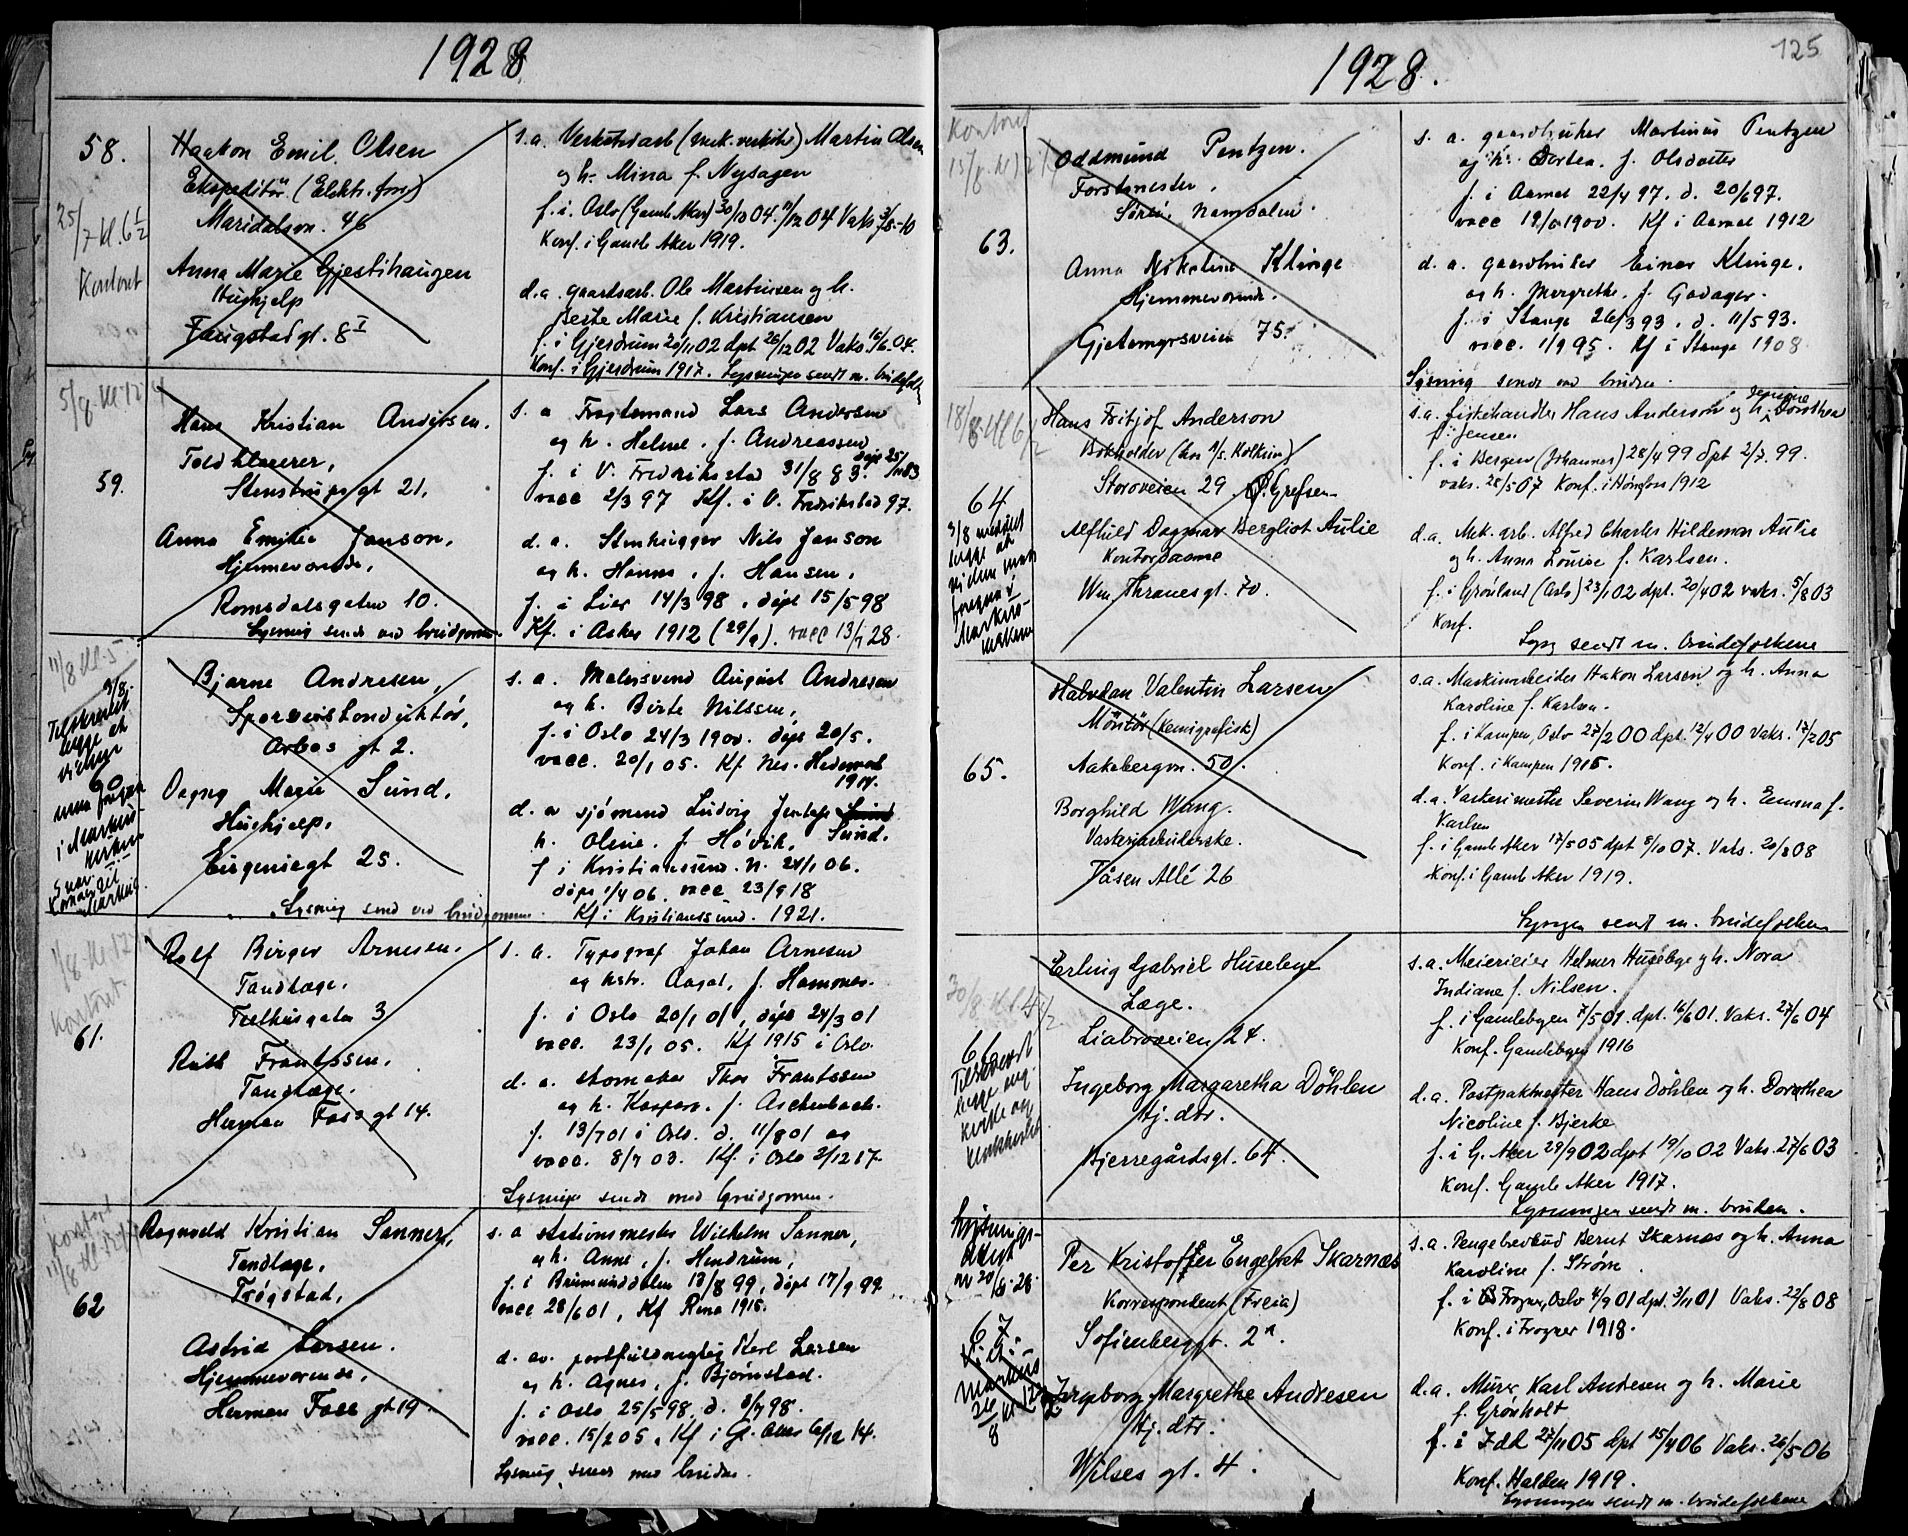 1928
58.
25/7 kl. 6 1/2
Kontoret
Haakon Emil Olsen
Ekspeditör (Elektr. forr)
Maridalsvn. 46
Anna Marie Gjestihaugen
Hushjelp
Fougstadgt. 8 I
s. a. Verkstedarb (mek. verksted) Martin Olsen
og h. Mina f. Nysagen
f. i. Oslo (Gamle Aker) 04. 04 Vaks
Konf. i Gamle Aker 1919.
d. a. gaardsarb. Ole Martinsen og h.
Marie f. Kristiansen
f. i Gjerdrum 20/11 02 dpt 26/12 02 Vaks 04.
Konf. i Gjerdrum 1917. sendt m. brudefolk
5/8 kl 12
59.
Hans Kristian Andersen.
Toldklarerer,
Stenstrups gt 21.
Anna Emilie Janson,
Hjemmeværende,
Romsdalsgaten 10.
Lysning sendt ved brudgommen.
s. a Fragtemand Lars Andersen
og h. Helene. f. Andreassen
f. i V. Fredrikstad 31/8 83. døpt 25/11 83
vacc 2/3 97 Kf. i V. Fredrikstad 97.
d. a. Stenhugger Nils Janson
og h. Hanna, f. Hansen,
f. i Lier 14/3 98, døpt 15/5 98
Kf. i Asker 1912 (29/9). vacc 13/7 28.
11/8 kl 5
9/8.
Tilskrevet
begge at
vielsen
60
maa foregaa
i Markus-
kirken
Bjarne Andresen,
Sporveiskonduktör,
Arbos gt 2.
Dagny Marie Sund,
Hushjelp,
Eugeniegt 25.
Lysning send ved brudgommen.
s. a. Malersvend August Andresen
og h. Birte Nilssen,
f. i Oslo 24/3 1900. døpt 20/5.
vacc. 20/1 05. Kf Nes. Hedemark
d. a sjömand Ludvig Jentoft
h. Oline. f. Høvik. Sund.
f i Kristianssund. N. 24/1 06.
døpt 1/4 06. vacc 23/9 18
Kf i Kristianssund. 1921.
11/8 kl 12
Kontoret
61.
Rolf Birger Arnesen.
Tandlæge.
Tolthusgaten 3
Ruth Frantssen.
Tandlæge.
Herman Foss gt 14.
s. a. Typograf Johan Arnesen
og hstr. Aagot, f. Hammones.
f. i Oslo 20/1 01, døpt 24/3 01
vacc. 23/1 05. Kf 1915 i Oslo
d. a. skomaker Thor Frantssen
og h. Kaspara. f. Aschenbach.
f. 13/7 01 i Oslo. d. 11/8 01 og
vacc. 8/7 03. Kf. i Oslo 2/12 17.
Lysninger sendt med brudgommen.
Kontoret
11/8 kl 12
62
Ragnvald Kristian Sanner,
Tandlæge.
Trøgstad,
Astrid Larsen.
Hjemmeværende,
Herman Foss gt 19
s. a stationsmester Wilhelm Sanner,
og h. Anne, f. Hendrum,
f. i Brumunddalen 13/8 99, døpt 17/9 99
vacc 28/6 01, Kf Rena 1915.
d. av. postfuldmægtig Karl Larsen
og h. Agnes, f. Bjørnstad.
f. i Oslo 25/5 98, d. 3/7 98.
vacc. 15/2 05. Kf i Gl. Aker 6/12 14.
Lysning sendt med bruden.
125
1928.
Kontoret
15/8. kl 2
63.
Oddmund Pentzen.
Forstmester,
Sörli, Namdalen.
Anna Nikoline Klinge
Hjemmeværende.
Gjetemyrsveien 75.
s. a. gaardbruker Martinus Pentzen
og h. Dortea. f. Olsdatter
f. i Aamot 22/4 97. d. 20/6 97.
vacc 1900. Kf i Aamot 1912
d. a. gaardbruker Einar Klinge.
og h. Margrethe. f. Godager.
f. i Stange 26/3 93. d. 11/5 93.
vacc. 1/9 95. Kf i Stange 1908
Lysning sendt ved bruden.
18/8 kl 6 1/2
64
9/8 meddelt
begge at
vielsen maa
foregaa i
Markus-
kirken
Hans Fritjof Anderson
Bokholder (hos
Storoveien 29, Grefsen
Alfhild Dagmar Bergliot Aulie
Kontordame
Wm. Thranesgt. 70.
s. a. fiskehandler Hans Anderson og h. Jensine Dorothea
f. Jensen
f. i Bergen (Johannes) 28/4 99 dpt 2/7. 99.
vaks. 28/5 07 Konf. i Hönefoss 1912
d. a. Mek. arb. Alfred Charles Hildemar Aulie
og h. Anna Louise f. Karlsen.
f. i Grönland (Oslo) 23/1 02 dpt. 20/4 02 vaks. 5/8 03
Konf.
Lysn sendt m. brudefolkene
65.
Halvdan Valentin Larsen
Möntör (Kemigrafisk)
Aakebergvn. 50.
Borghild Wang.
Vaskeriarbeiderske.
Tåsen Allé 26
s. a. Maskinarbeider Hakon Larsen og h. Anna
Karoline f. Karlsen.
f. i Kampen, Oslo 27/2 00 dpt. 12/4 00 Vaks. 17/2 05
Konf. i Kampen 1915.
d. a. Vaskerimester Severin Wang og h. Emma f.
Karlsen
f. i Gamle Aker 17/5 05 dpt 8/10 07. Vaks. 20/8 08
Konf. i Gamle Aker 1919.
Lysngn sendt m. brudefolkene
30/8. kl 4 1/2
66
Tilskrevet
begge ang.
kirke og
klokkeslet
Erling Gabriel Huseby
Læge.
Liabroveien 24.
Ingeborg Margaretha Döhlen
Hj. dtr.
Bjerregårdsgt. 64.
s. a. Meierieier Helmer Huseby og h. Nora
Indiane f. Nilsen.
f. i Gamlebyen 7/5 01. dpt. 16/6 01. Vaks. 27/6 04
Konf. Gamlebyen 1916
d. a. Postpakmester Hans Döhlen og h. Dorothea
Nicoline f. Bjerke
f. i G. Aker 29/9 02 dpt 19/10 02 Vaks. 27/6 03
Konf. Gamle Aker 1917.
Lysningen sendt m. bruden.
Lysnings-
attest
28.
67.
Markus
26/8 kl 12
Per Kristoffer Engebret Skarnæs
Korrespondent (Freia)
Sofienberggt. 2 a.
Ingeborg Margrethe Andresen
Hj. dtr.
Wilses gt. 4.
s. a. Pengebrevbud Bernt Skarnæs og h. Anna
Karoline f. Ström
f. i Frogner, Oslo 4/9 01 dpt. 3/11 01 Vaks. 22/8 08
Konf. i Frogner 1918.
d. a. Murer Karl Andresen og h. Marie
f. Grönholt
f. i Idd 27/11 05 dpt 15/4 06 Vaks. 26/5 06
Konf. Halden 1919.
Lysningen sendt m. brudefolkene